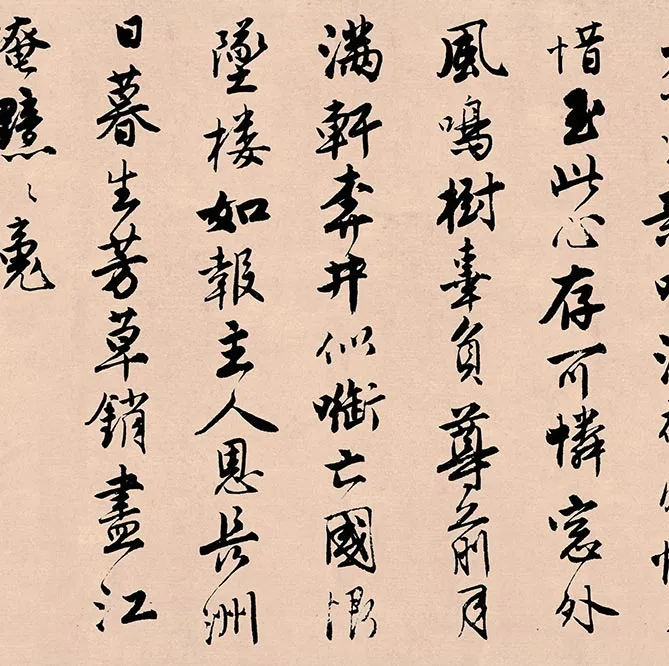 惜玉此心存可憐窓外
風鳴樹辜負尊前月
滿軒奔井似啣亡國恨
墜楼如報主人恩長洲
日暮生芳草銷盡江
淹黯〻魂